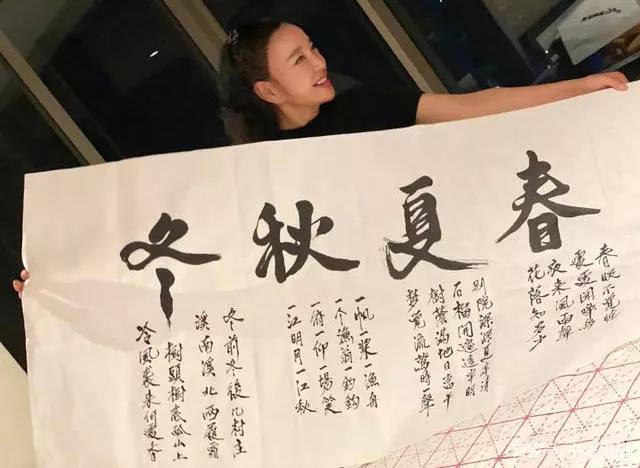 春夏秋冬
春眠不覺曉
處處聞啼鳥
夜来風雨聲
花落知多少
別院深深夏席清
石榴開遍透簾明
樹蔭滿地日當午
夢覺流鶯時一聲
一帆一槳一漁舟
一个漁翁一釣鈎
一俯一仰一場笑
一江明月一江秋
冬前冬後几村庄
溪南溪北兩履霜
樹頭樹底孤山上
冷風襲来何處香